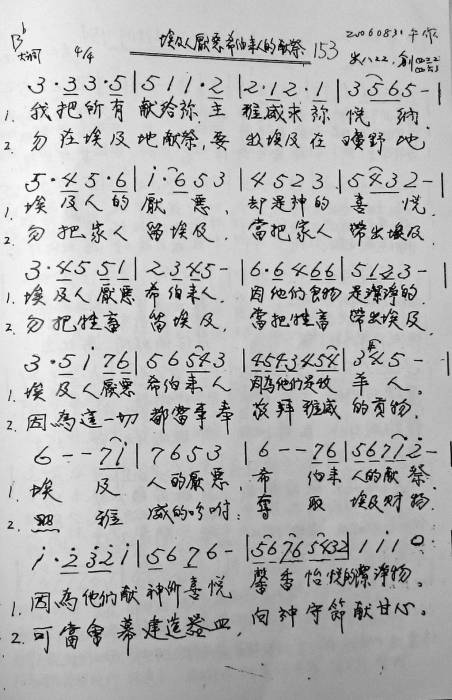 B♭ 大調 4/4 埃及人厭惡希伯來人的獻祭 153 20060831
出八22, 創
3·33·5|511·2|2·12·1|3565-|
1. 我把所有獻給祢主 雅威來祢悅納
2. 勿在埃及地獻祭,要出埃及在曠野地
5·45·6|i·653|4523|5432-|
1. 埃及人的厭惡, 却是神的喜悅.
2. 勿把家人留埃及, 當把家人帶出埃及
3·4551|2345-|6·6466|5123-|
1. 埃及人厭惡希伯來人, 因他們食物是潔淨的.
2. 勿把牲畜留埃及, 當把牲畜帶出埃及
3·5i76|56543|4543454|345-|
1. 埃及人厭惡希伯來人 因為他們為牧羊人。
2. 因為這一切都當事奉敬拜雅威的貢物.
6--7i|7653|6--76|5671̇2̇-|
1. 埃及人的厭惡 希伯來人的獻祭
2. 照雅威的吩咐: 奪取埃及財物
i·232i|5676-|56765432|1110
1. 因為他們獻神所喜悅 馨香怡悅的潔淨物。
2. 可當會幕建造器皿, 向神守節獻甘心。